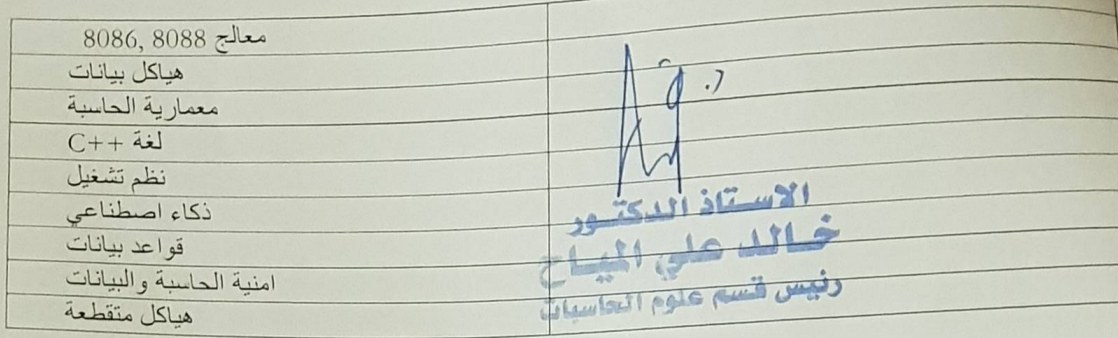 معالج 8088 ,8086
هياكل بيانات
معمارية الحاسبة
لغة C++
نظم تشغيل
ذكاء اصطناعي
قواعد بيانات
امنية الحاسبة والبيانات
هياكل متقطعة
د.
الاستاذ الدكتور
خالد علي المياح
رئيس قسم علوم الحاسبات